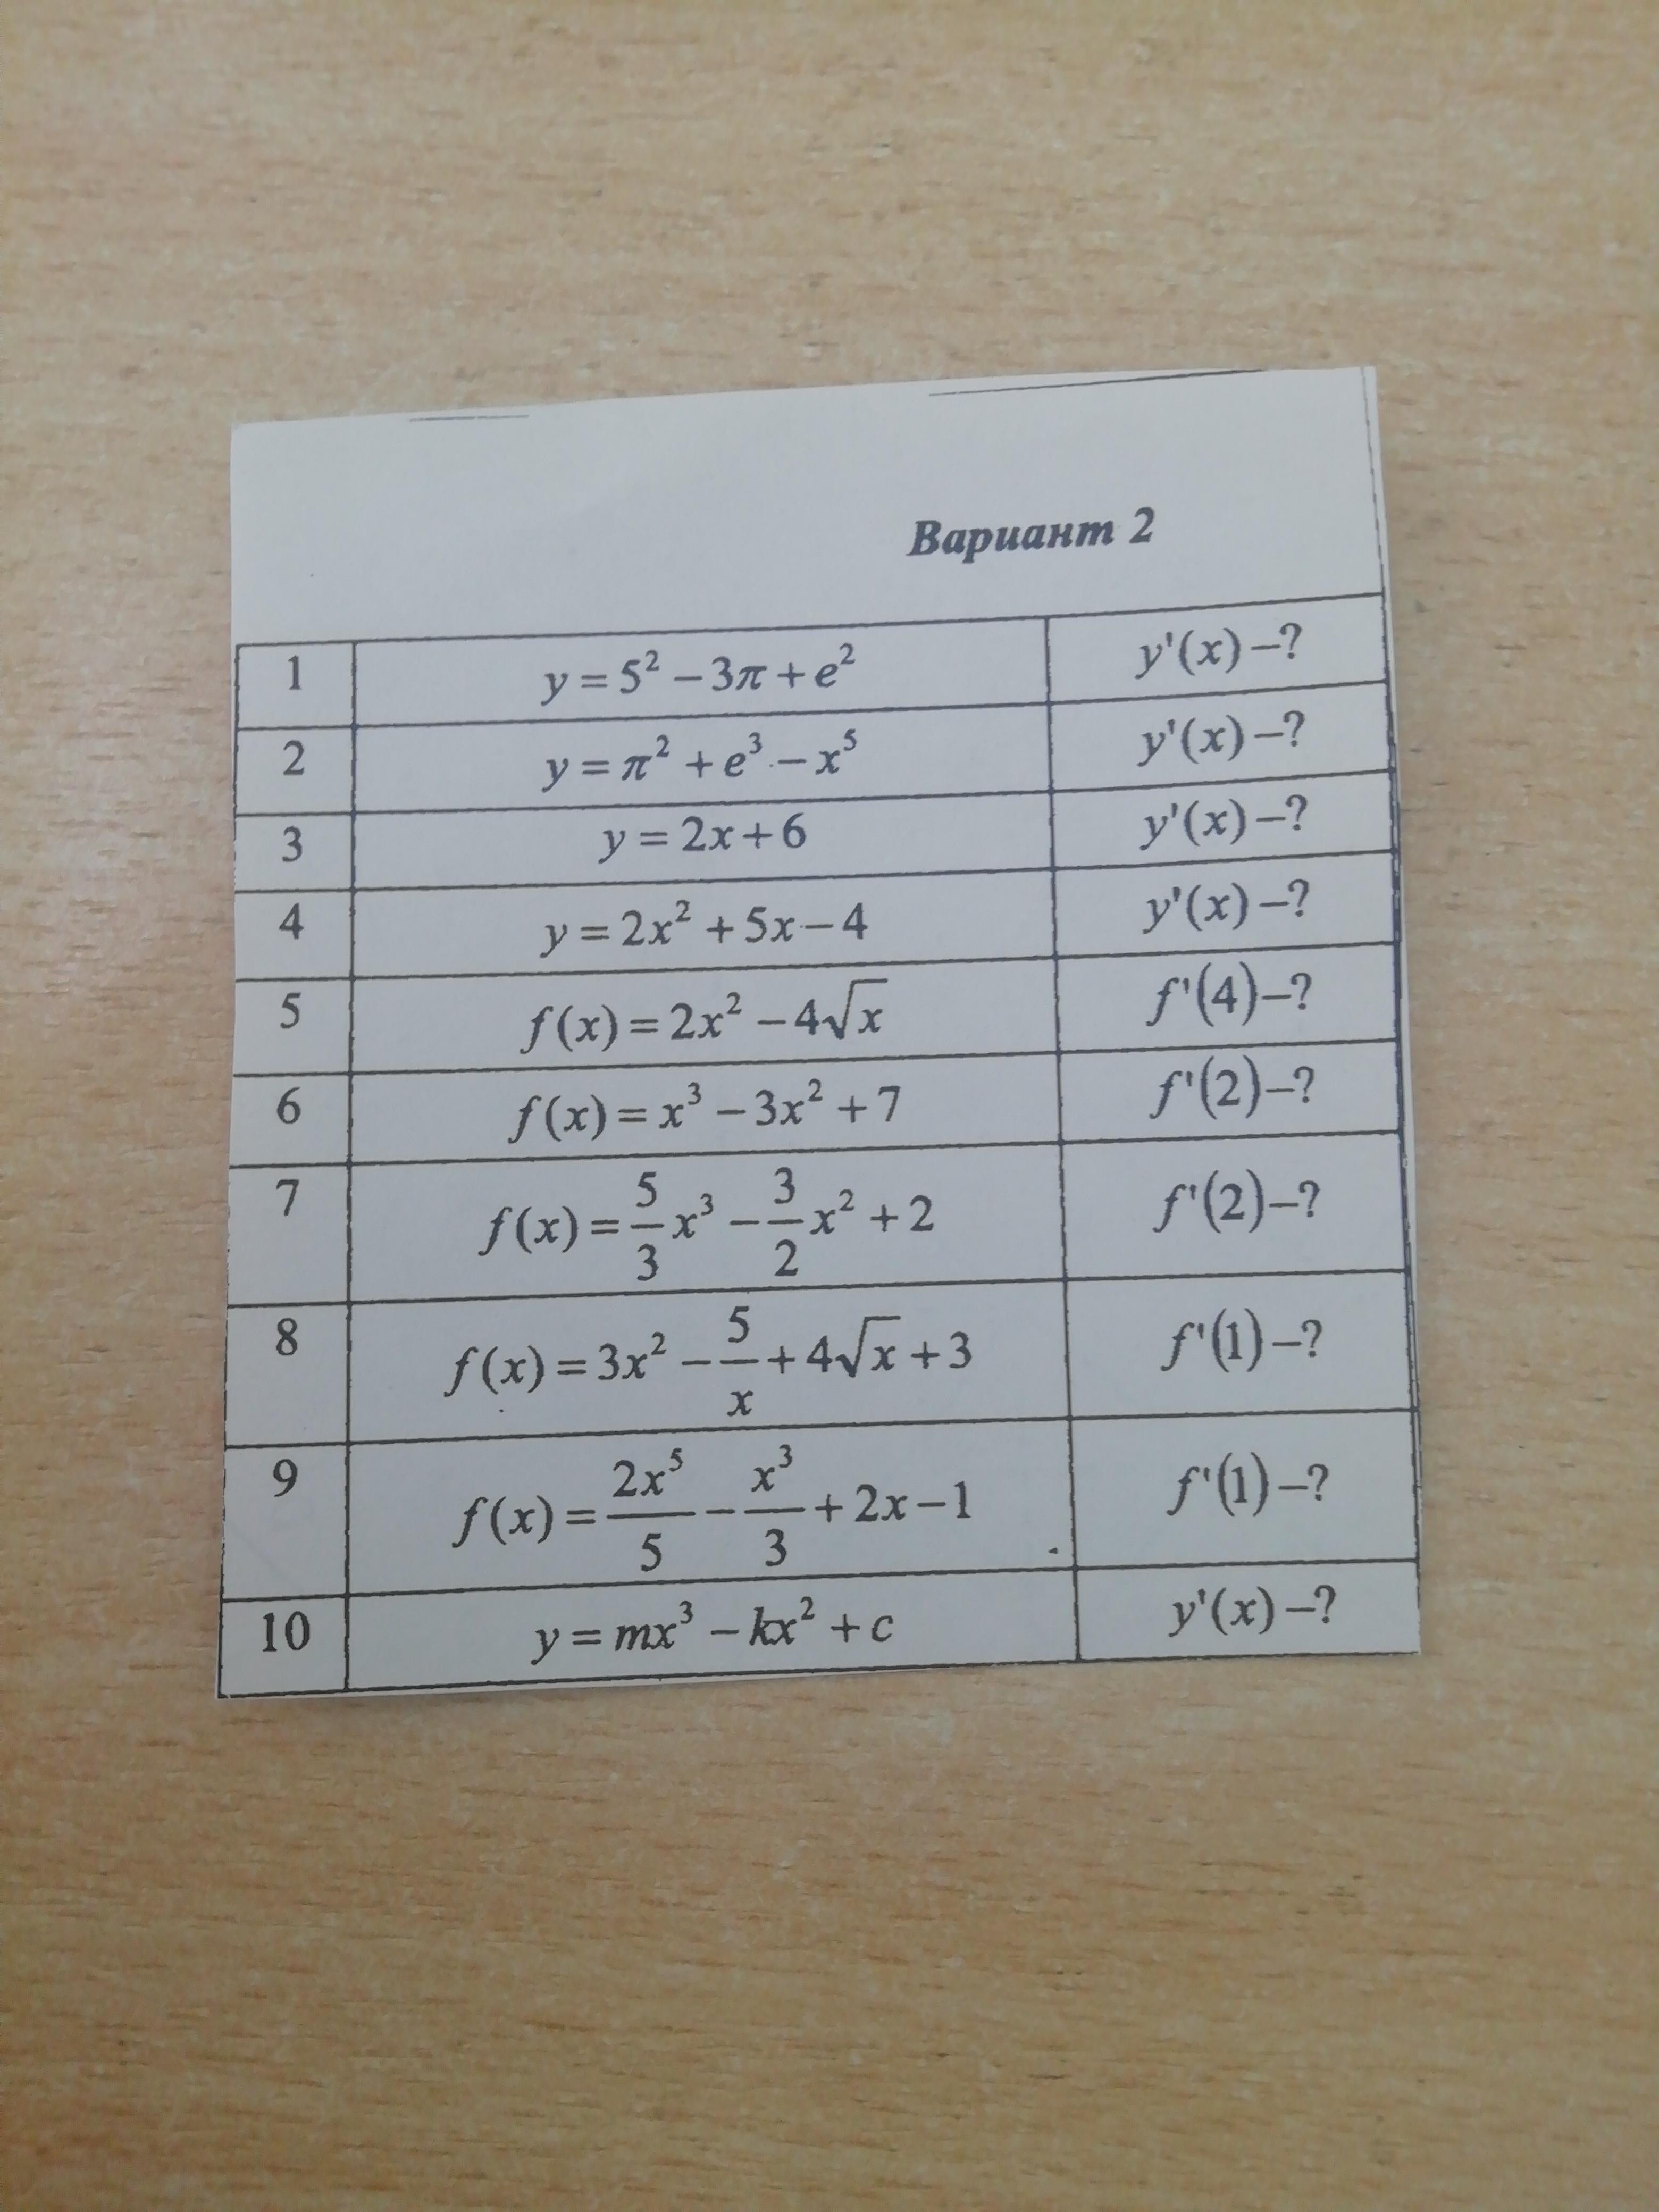 Вариант 2
1 y = 5² − 3π + e² y'(x) −?
2 y = π² + e³ − x⁵ y'(x) −?
3 y = 2x + 6 y'(x) −?
4 y = 2x² + 5x − 4 y'(x) −?
5 f(x) = 2x² − 4√x f'(4) −?
6 f(x) = x³ − 3x² + 7 f'(2) −?
7 f(x) = 5/3 x³ − 3/2 x² + 2 f'(2) −?
8 f(x) = 3x² − 5/x + 4√x + 3 f'(1) −?
9 f(x) = 2x⁵/5 − x³/3 + 2x − 1 f'(1) −?
10 y = mx³ − kx² + c y'(x) −?